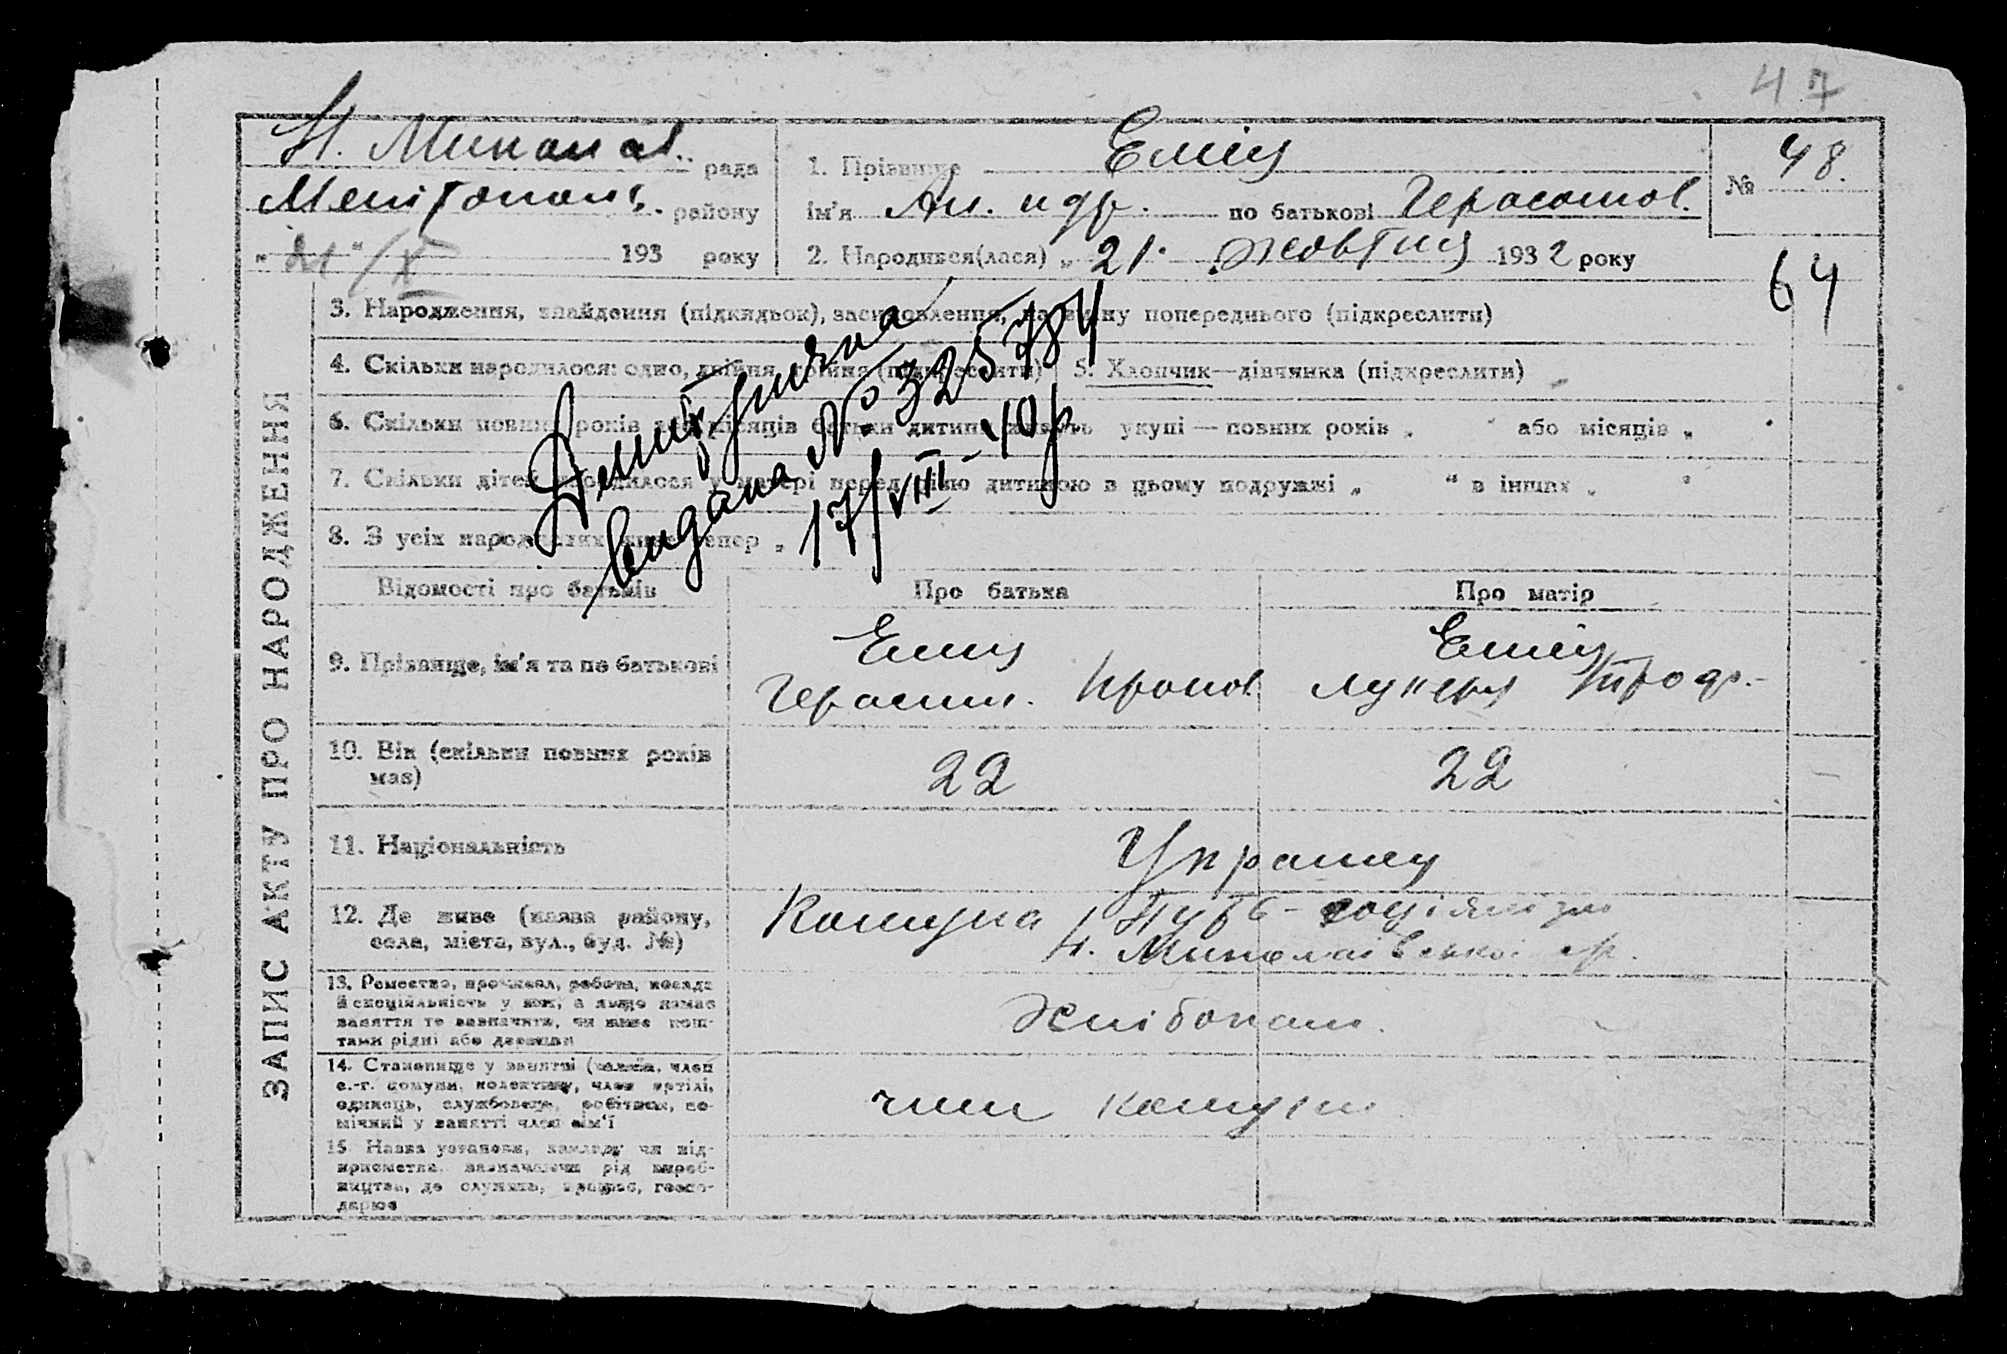 47
Н. Миколаїв. рада
Мелітополь. району
" 21 "/X 193 року
1. Прізвище Еміц
ім'я по батькові Герасимов.
2. Народився(лася) „ 21. жовтня 1932 року
№ 48.
64
ЗАПИС АКТУ ПРО НАРОДЖЕННЯ
3. Народження, знайдення (підкидьок), засиновлення, на зміну попереднього (підкреслити)
4. Скільки народилося: одно, двійня, трійня (підкреслити)
5. Хлопчик—дівчинка (підкреслити)
6. Скільки повних років або місяців батьки дитини живуть укупі — повних років „ " або місяців „
7. Скільки дітей народилося у матері перед цією дитиною в цьому подружжі „ " в інших „ "
8. З усіх народжених живе тепер „
видана № 325784
17/VIII-40р.
Відомості про батьків
Про батька
Про матір
9. Прізвище, ім'я та по батькові
Еміц
Герасим.
Еміц
Лукерія Троф.-
10. Вік (скільки повних років має)
22
22
11. Національність
Украінц
12. Де живе (назва району, села, міста, вул., буд. №)
Комуна Путь- соціялізм
Н. Миколаівської с/р.
13. Ремество, промисел, робота, посада
й спеціяльність у них, а якщо немає
заняття то зазначити, чи живе кош-
тами рідні або держави
Хлібороб.
14. Становище у занятті (хазяїн, член
с.-г. комуни, колективу, член артілі,
одинець, службовець, робітник, по-
мічний у занятті член сім'ї
член комуни
15 Назва установи, закладу чи під-
приємства, зазначаючи рід вироб-
ництва, де служить, працює, госпо-
дарює